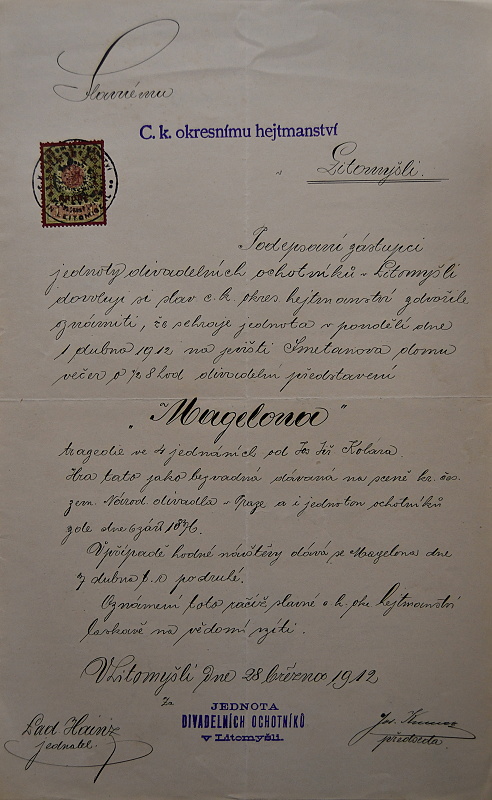 Slavnému
C. k. okresnímu hejtmanství
v Litomyšli.
Podepsaní zástupci
jednoty divadelních ochotníků v Litomyšli
dovolují si slav. c. k. okres. hejtmanství zdvořile
oznámiti, že sehraje jednota v pondělí dne
1 dubna 1912 na jevišti Smetanova domu
večer o ½ 8 hod divadelní představení
"Magelona"
tragedie ve 4 jednáních od Jos Jiř Kolára.
Hra tato jako bezvadná dávána na scéně kr. čes.
zem. Národ. divadla v Praze a i jednotou ochotníků
zde dne 6 září 1876.
V případě hodné návštěvy dává se Magelona dne
7 dubna t. r. po druhé.
Oznámení toto račiž slavné c. k. okr. hejtmanství
laskavě na vědomí vzíti.
V Litomyšli dne 28 března 1912
Za
JEDNOTA
DIVADELNÍCH OCHOTNÍKŮ
v Litomyšli.
Lad Hainz
jednatel.
Jos.
předseda.